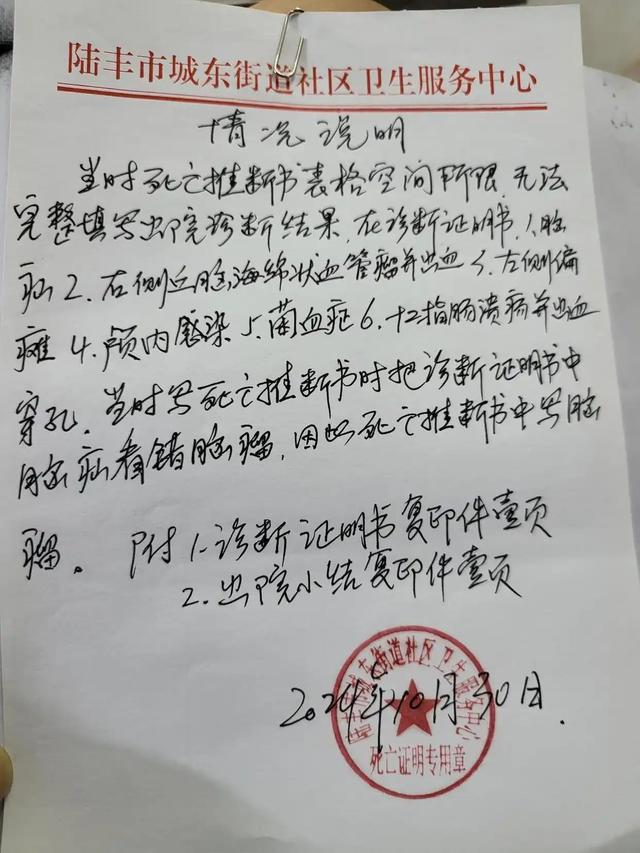 陆丰市城东街道社区卫生服务中心
情况说明
当时死亡推断书表格空间所限,无法
完整填写出院诊断结果,在诊断证明书,1.脑
疝2.右侧丘脑海绵状血管瘤并出血3.左侧偏
瘫4.颅内感染5.菌血症6.十二指肠溃疡并出血
穿孔。当时写死亡推断书时把诊断证明书中
脑疝看错脑瘤,因此死亡推断书中写脑
瘤。附1.诊断证明书复印件壹页
2.出院小结复印件壹页
2024年10月30日.
城东街道社区卫生服务中心
死亡证明专用章